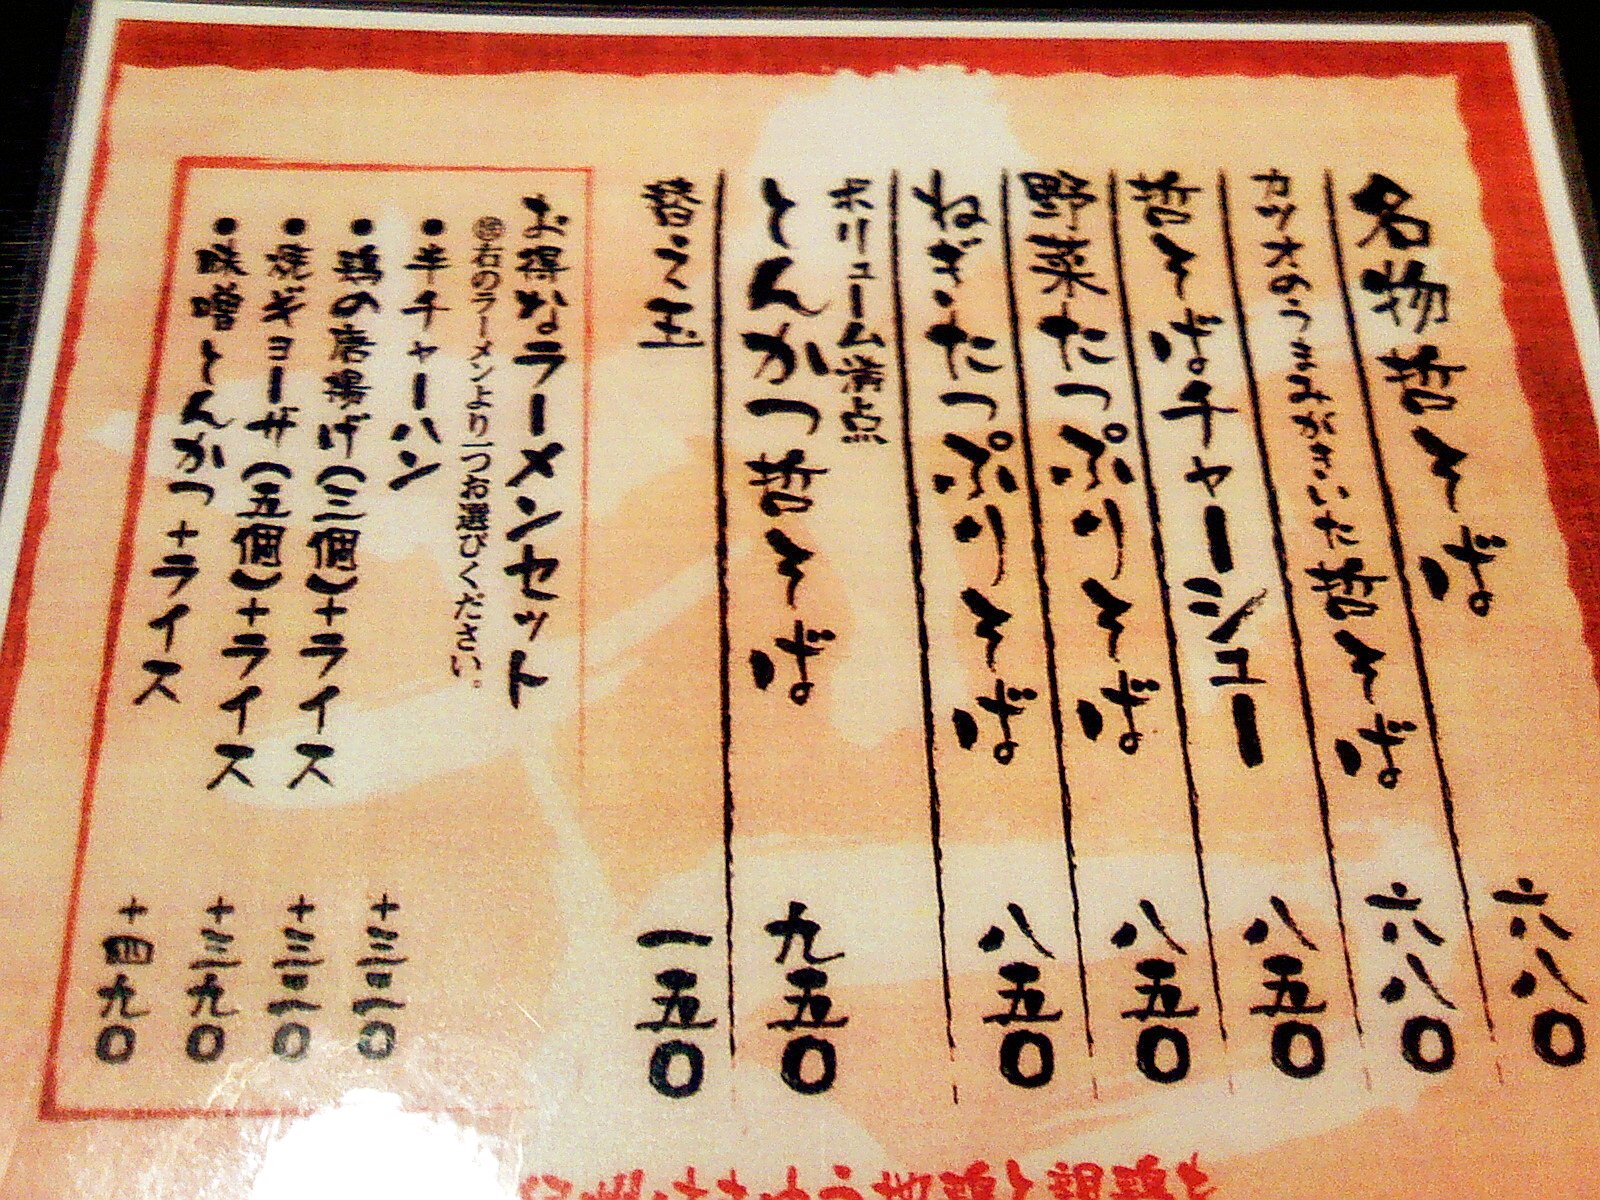 名物哲そば 六八〇
カツオのうまみがきいた哲そば 六八〇
哲そばチャーシュー 八五〇
野菜たっぷりそば 八五〇
ねぎたっぷりそば 八五〇
ボリューム満点
とんかつ哲そば 九五〇
替え玉 一五〇
お得なラーメンセット
右のラーメンより一つお選びください。
●半チャーハン +三二〇
●鶏の唐揚げ(三個)+ライス +三二〇
●焼ギョーザ(五個)+ライス +三九〇
●味噌とんかつ+ライス +四九〇